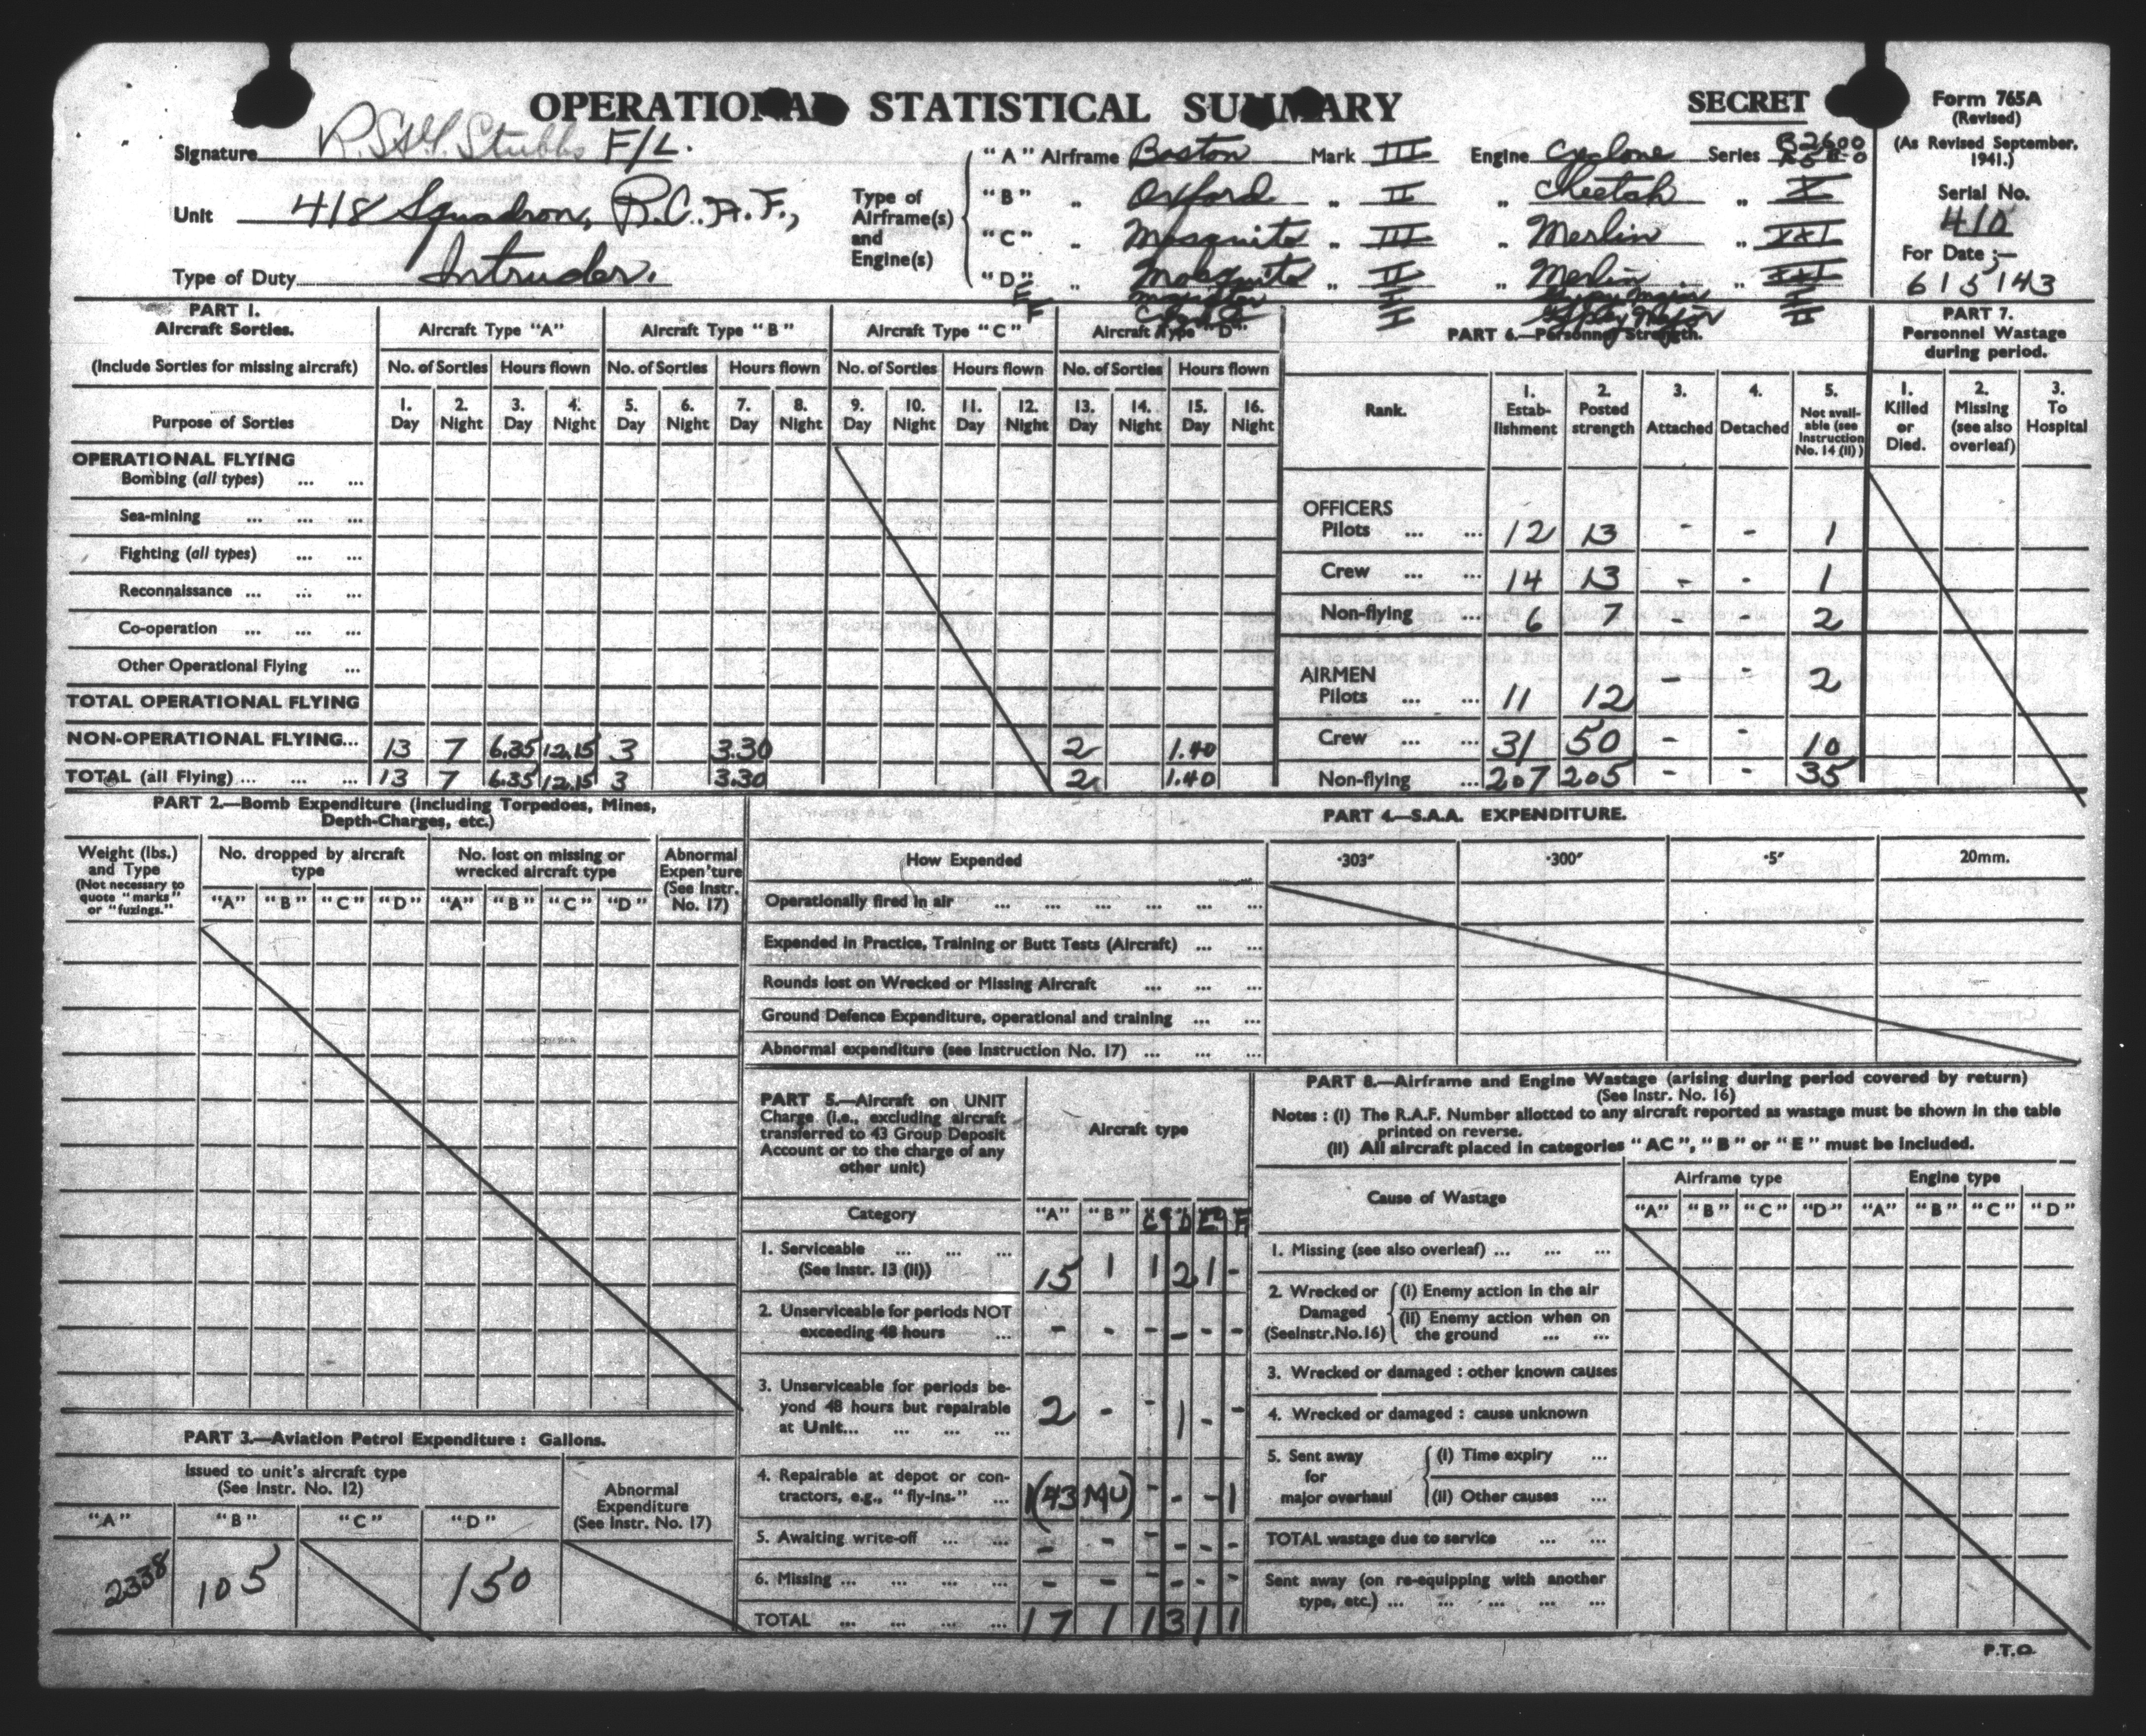 OPERATIONAL STATISTICAL SUMMARY
SECRET
Form 765A
(Revised)
(As Revised September, 1941.)
Serial No.
410
For Date :—
6/5/43
Signature Stubbs F/L.
Unit 418 Squadron, R.C.A.F.,
Type of Duty Intruder.
Type of Airframe(s) and Engine(s)
"A" Airframe Boston Mark III Engine Cyclone Series
"B" „ Oxford „ II „ Cheetah „ X
"C" „ Mosquito „ III „ Merlin „ XXI
"D" „ Mosquito „ II „ Merlin „ XXI
E Magister I Gipsy Major I
F I Gipsy Major II
PART 1.
Aircraft Sorties.
(Include Sorties for missing aircraft)
Aircraft Type "A" Aircraft Type "B" Aircraft Type "C" Aircraft Type "D"
No. of Sorties Hours flown No. of Sorties Hours flown No. of Sorties Hours flown No. of Sorties Hours flown
Purpose of Sorties
1. Day 2. Night 3. Day 4. Night 5. Day 6. Night 7. Day 8. Night 9. Day 10. Night 11. Day 12. Night 13. Day 14. Night 15. Day 16. Night
OPERATIONAL FLYING
Bombing (all types) ... ...
Sea-mining ... ... ...
Fighting (all types) ... ...
Reconnaissance ... ... ...
Co-operation ... ... ...
Other Operational Flying ...
TOTAL OPERATIONAL FLYING
NON-OPERATIONAL FLYING... 13 7 6.35 12.15 3 3.30 2 1.40
TOTAL (all Flying) ... ... ... 13 7 6.35 12.15 3 3.30 2 1.40
PART 6.—Personnel Strength.
Rank.
1. Estab-lishment
2. Posted strength
3. Attached
4. Detached
5. Not avail-able (see Instruction No. 14 (II))
OFFICERS
Pilots ... ... 12 13 - - 1
Crew ... ... 14 13 - - 1
Non-flying ... 6 7 - - 2
AIRMEN
Pilots ... ... 11 12 - - 2
Crew ... ... 31 50 - - 10
Non-flying ... 207 205 - - 35
PART 7.
Personnel Wastage during period.
1. Killed or Died.
2. Missing (see also overleaf)
3. To Hospital
PART 2.—Bomb Expenditure (including Torpedoes, Mines, Depth-Charges, etc.)
Weight (lbs.) and Type
(Not necessary to quote "marks" or "fuzings."
No. dropped by aircraft type
No. lost on missing or wrecked aircraft type
Abnormal Expen'ture (See Instr. No. 17)
"A" "B" "C" "D" "A" "B" "C" "D"
PART 4.—S.A.A. EXPENDITURE.
How Expended ·303" ·300" ·5" 20mm.
Operationally fired in air ... ... ... ... ... ...
Expended in Practice, Training or Butt Tests (Aircraft) ... ...
Rounds lost on Wrecked or Missing Aircraft ... ... ...
Ground Defence Expenditure, operational and training ... ...
Abnormal expenditure (see Instruction No. 17) ... ... ...
PART 3.—Aviation Petrol Expenditure : Gallons.
Issued to unit's aircraft type
(See Instr. No. 12)
Abnormal Expenditure (See Instr. No. 17)
"A" "B" "C" "D"
2338 105 150
PART 5.—Aircraft on UNIT Charge (i.e., excluding aircraft transferred to 43 Group Deposit Account or to the charge of any other unit)
Aircraft type
Category "A" "B" C D E F
1. Serviceable ... ... ...
(See Instr. 13 (II)) 15 1 1 2 1 -
2. Unserviceable for periods NOT exceeding 48 hours ... - - - - - -
3. Unserviceable for periods be-yond 48 hours but repairable at Unit... ... ... ... 2 - - 1 - -
4. Repairable at depot or con-tractors, e.g., "fly-ins." ... 1(43 MU) - - - 1
5. Awaiting write-off ... ... - - - - - -
6. Missing ... ... ... ... - - - - - -
TOTAL ... ... ... ... 17 1 1 3 1 1
PART 8.—Airframe and Engine Wastage (arising during period covered by return)
(See Instr. No. 16)
Notes : (I) The R.A.F. Number allotted to any aircraft reported as wastage must be shown in the table printed on reverse.
(II) All aircraft placed in categories "AC", "B" or "E" must be included.
Cause of Wastage
Airframe type Engine type
"A" "B" "C" "D" "A" "B" "C" "D"
1. Missing (see also overleaf) ... ... ...
2. Wrecked or Damaged (See Instr. No. 16)
(I) Enemy action in the air
(II) Enemy action when on the ground ... ...
3. Wrecked or damaged : other known causes
4. Wrecked or damaged : cause unknown
5. Sent away for major overhaul
(I) Time expiry ...
(II) Other causes ...
TOTAL wastage due to service ... ...
Sent away (on re-equipping with another type, etc.) ... ... ... ... ...
P.T.O.